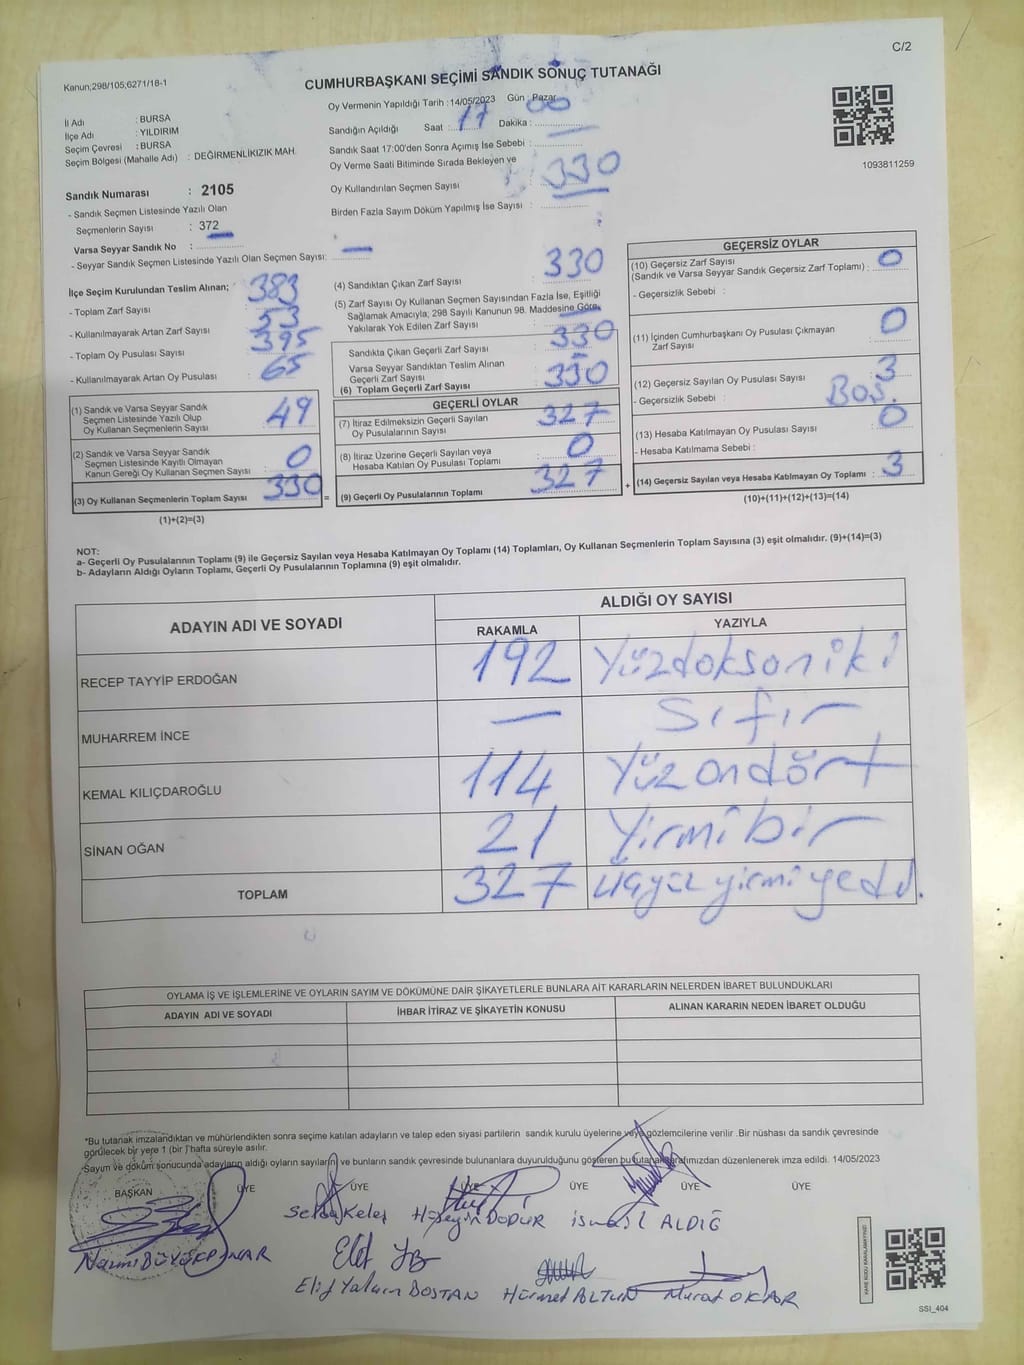 C/2
Kanun;298/105;6271/18-1
CUMHURBAŞKANI SEÇİMİ SANDIK SONUÇ TUTANAĞI
İl Adı : BURSA
İlçe Adı : YILDIRIM
Seçim Çevresi : BURSA
Seçim Bölgesi (Mahalle Adı) : DEĞİRMENLİKIZIK MAH.
Sandık Numarası : 2105
- Sandık Seçmen Listesinde Yazılı Olan
Seçmenlerin Sayısı : 372
Varsa Seyyar Sandık No :
- Seyyar Sandık Seçmen Listesinde Yazılı Olan Seçmen Sayısı: —
Oy Vermenin Yapıldığı Tarih : 14/05/2023 Gün : Pazar
Sandığın Açıldığı Saat : 17 Dakika : 00
Sandık Saat 17:00'den Sonra Açımış İse Sebebi : —
Oy Verme Saati Bitiminde Sırada Bekleyen ve
Oy Kullandırılan Seçmen Sayısı : 330
Birden Fazla Sayım Döküm Yapılmış İse Sayısı :
1093811259
İlçe Seçim Kurulundan Teslim Alınan;
- Toplam Zarf Sayısı : 383
- Kullanılmayarak Artan Zarf Sayısı : 53
- Toplam Oy Pusulası Sayısı : 395
- Kullanılmayarak Artan Oy Pusulası : 65
(1) Sandık ve Varsa Seyyar Sandık
Seçmen Listesinde Yazılı Olup
Oy Kullanan Seçmenlerin Sayısı : 49
(2) Sandık ve Varsa Seyyar Sandık
Seçmen Listesinde Kayıtlı Olmayan
Kanun Gereği Oy Kullanan Seçmen Sayısı : 0
(3) Oy Kullanan Seçmenlerin Toplam Sayısı : 330 =
(1)+(2)=(3)
(4) Sandıktan Çıkan Zarf Sayısı : 330
(5) Zarf Sayısı Oy Kullanan Seçmen Sayısından Fazla İse, Eşitliği
Sağlamak Amacıyla; 298 Sayılı Kanunun 98. Maddesine Göre,
Yakılarak Yok Edilen Zarf Sayısı : —
Sandıkta Çıkan Geçerli Zarf Sayısı : 330
Varsa Seyyar Sandıktan Teslim Alınan
Geçerli Zarf Sayısı : —
(6) Toplam Geçerli Zarf Sayısı : 330
GEÇERLİ OYLAR
(7) İtiraz Edilmeksizin Geçerli Sayılan
Oy Pusulalarının Sayısı : 327
(8) İtiraz Üzerine Geçerli Sayılan veya
Hesaba Katılan Oy Pusulası Toplamı : 0
(9) Geçerli Oy Pusulalarının Toplamı : 327 +
GEÇERSİZ OYLAR
(10) Geçersiz Zarf Sayısı
(Sandık ve Varsa Seyyar Sandık Geçersiz Zarf Toplamı) : 0
- Geçersizlik Sebebi :
(11) İçinden Cumhurbaşkanı Oy Pusulası Çıkmayan
Zarf Sayısı : 0
(12) Geçersiz Sayılan Oy Pusulası Sayısı : 3
- Geçersizlik Sebebi : BOŞ.
(13) Hesaba Katılmayan Oy Pusulası Sayısı : 0
- Hesaba Katılmama Sebebi :
(14) Geçersiz Sayılan veya Hesaba Katılmayan Oy Toplamı : 3
(10)+(11)+(12)+(13)=(14)
NOT:
a- Geçerli Oy Pusulalarının Toplamı (9) ile Geçersiz Sayılan veya Hesaba Katılmayan Oy Toplamı (14) Toplamları, Oy Kullanan Seçmenlerin Toplam Sayısına (3) eşit olmalıdır. (9)+(14)=(3)
b- Adayların Aldığı Oyların Toplamı, Geçerli Oy Pusulalarının Toplamına (9) eşit olmalıdır.
ADAYIN ADI VE SOYADI ALDIĞI OY SAYISI
RAKAMLA YAZIYLA
RECEP TAYYİP ERDOĞAN 192 Yüzdoksaniki
MUHARREM İNCE — Sıfır
KEMAL KILIÇDAROĞLU 114 Yüzondört
SİNAN OĞAN 21 Yirmibir
TOPLAM 327 üçyüzyirmiyedi.
OYLAMA İŞ VE İŞLEMLERİNE VE OYLARIN SAYIM VE DÖKÜMÜNE DAİR ŞİKAYETLERLE BUNLARA AİT KARARLARIN NELERDEN İBARET BULUNDUKLARI
ADAYIN ADI VE SOYADI İHBAR İTİRAZ VE ŞİKAYETİN KONUSU ALINAN KARARIN NEDEN İBARET OLDUĞU
*Bu tutanak imzalandıktan ve mühürlendikten sonra seçime katılan adayların ve talep eden siyasi partilerin sandık kurulu üyelerine veya gözlemcilerine verilir .Bir nüshası da sandık çevresinde
görülecek bir yere 1 (bir) hafta süreyle asılır.
Sayım ve döküm sonucunda adayların aldığı oyların sayıları ve bunların sandık çevresinde bulunanlara duyurulduğunu gösteren bu tutanak tarafımızdan düzenlenerek imza edildi. 14/05/2023
BAŞKAN ÜYE ÜYE ÜYE ÜYE ÜYE ÜYE
Selda Keleş Hüseyin DODUR ismail ALDIĞ
Nazmi BÜYÜKPINAR
Elif Yalçın BOSTAN Hürmet ALTUN Murat OKAR
KARE KODU KARALAMAYINIZ!
SSI_404